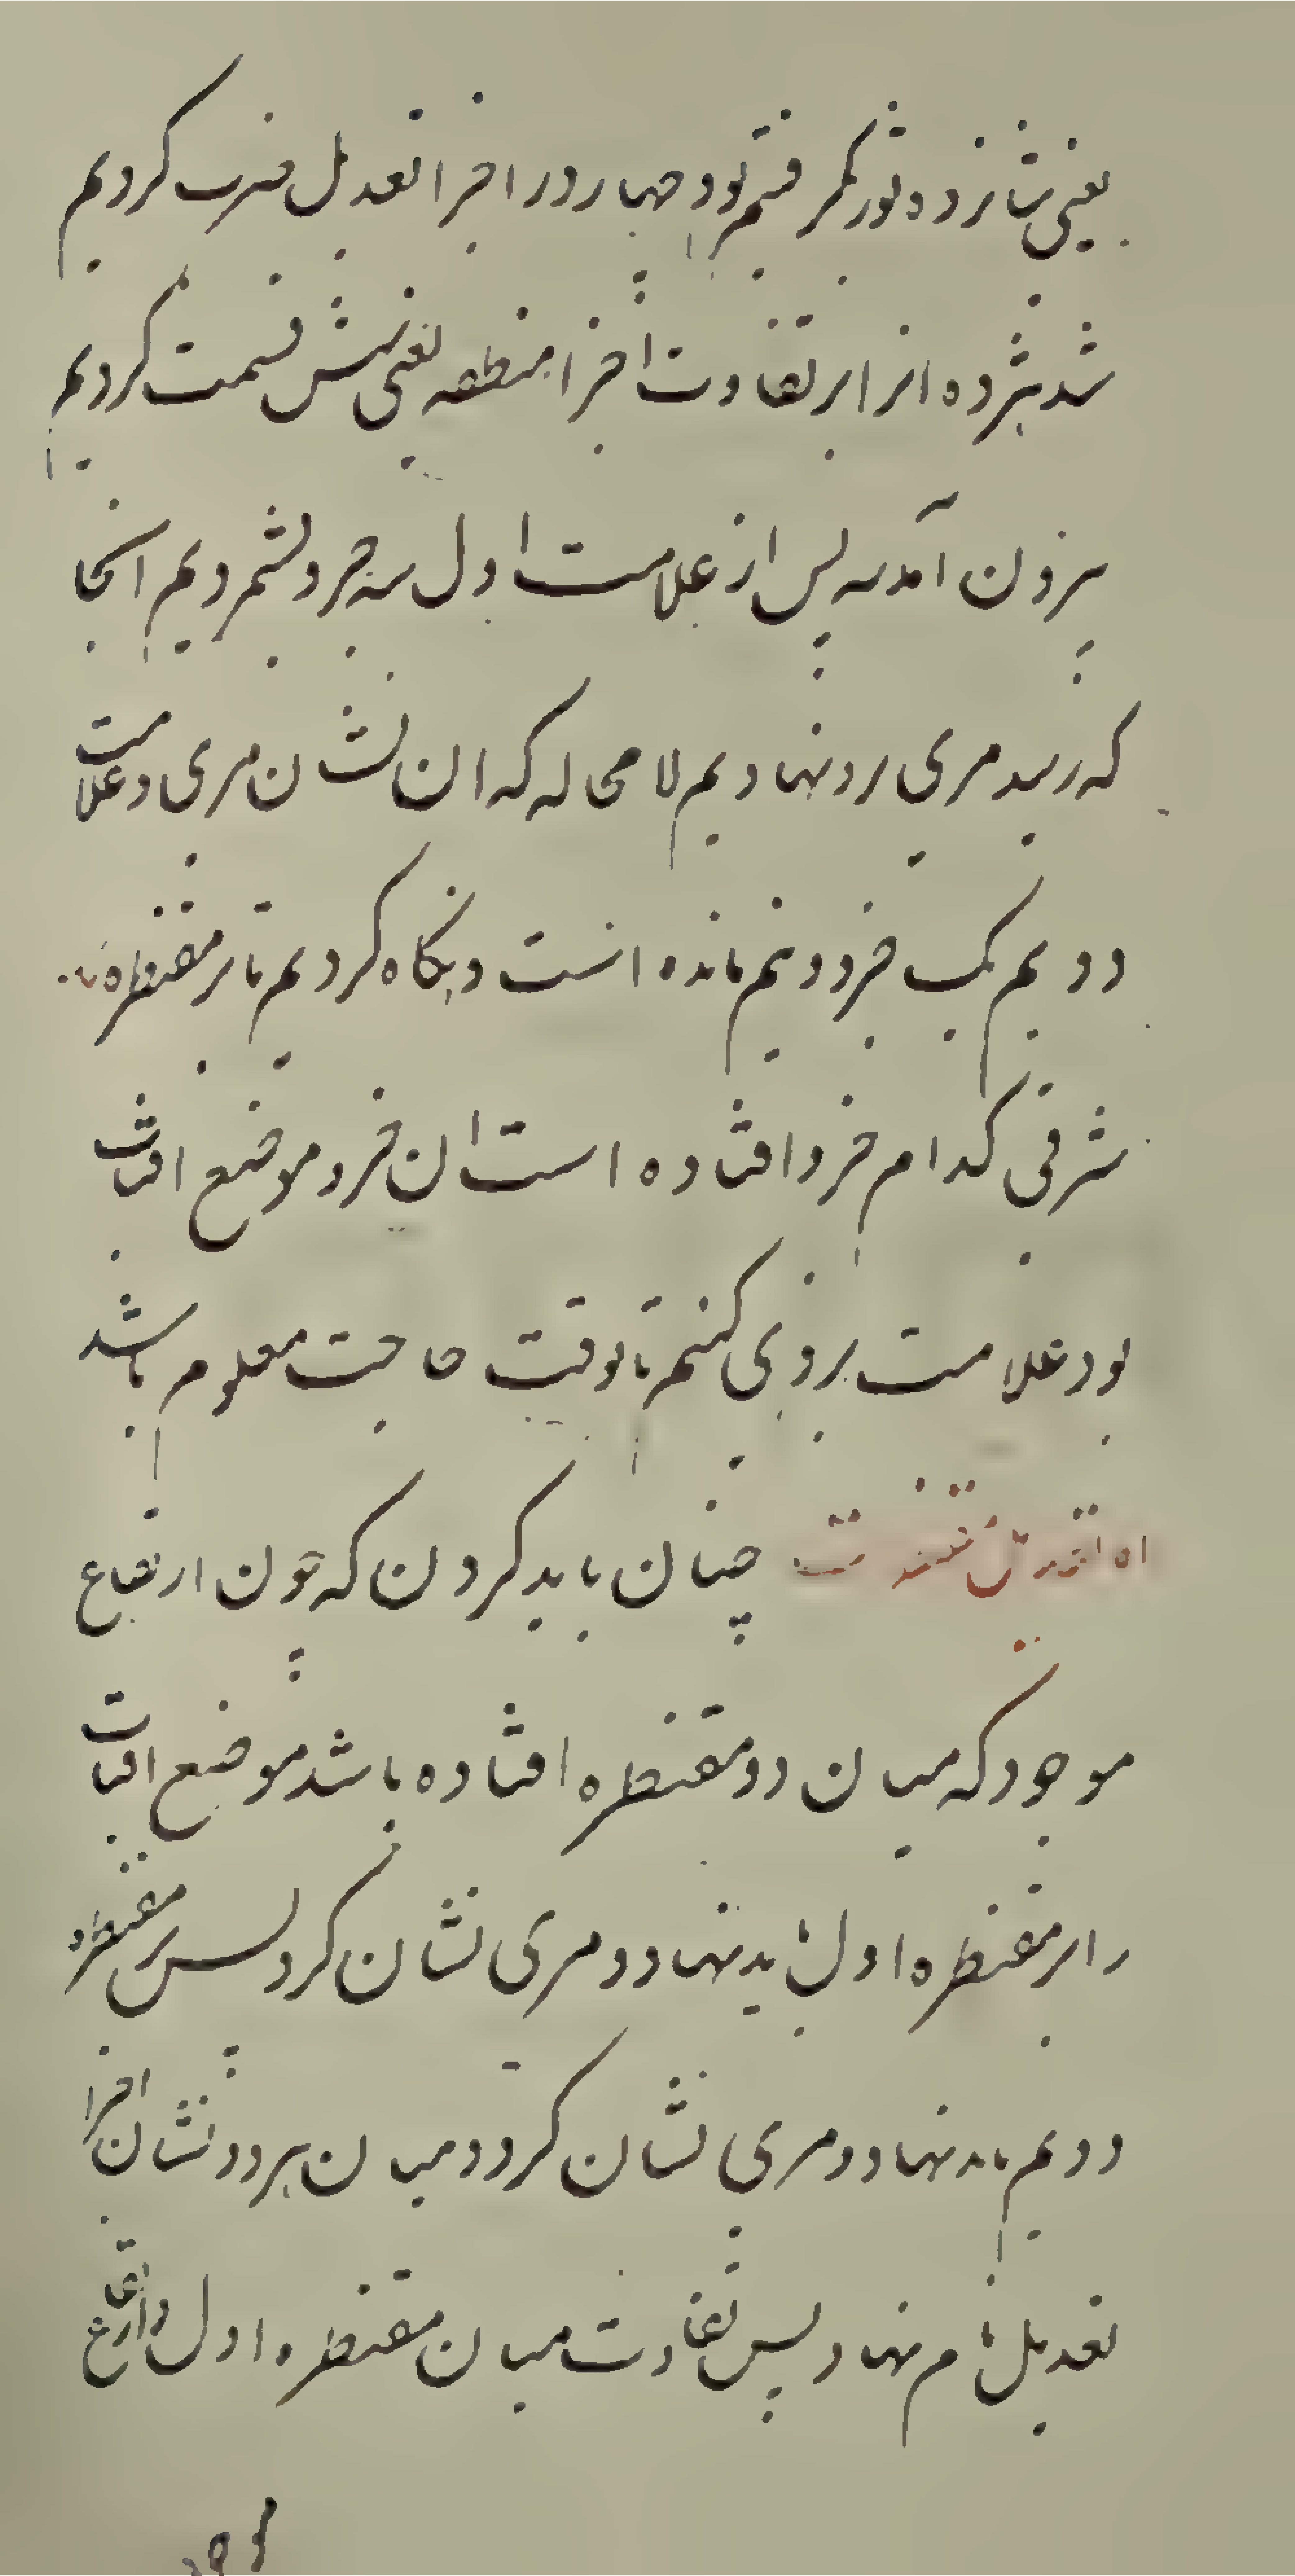 یعنی شانزده ثور برگرفتیم بود چهار در اجزا تعدیل ضرب کردیم
شد هژده انرا بر تفاوت اجزا منطقه یعنی شش قسمت کردیم
بیرون آمد سه پس از علامت اول سه جزو بشمردیم انجا
که رسید مری برو نهادیم لا محاله که ان نشان مری و علامت
دویم یک جزو و نیم مانده است و نگاه کردیم تا بر مقنطره
شرقی کدام جزو افتاده است ان جزو موضع افتاب
بود علامت بروی کنیم تا بوقت حاجت معلوم باشد
چنان باید کردن که چون ارتفاع
موجود که میان دو مقنطره افتاده باشد موضع افتاب
را بر مقنطره اول باید نهاد و مری نشان کرد پس بر مقنطره
دویم باید نهاد و مری نشان کرد و میان هر دو نشان اجزا
تعدیل نام نهاد پس تفاوت میان مقنطره اول و ارتفاع